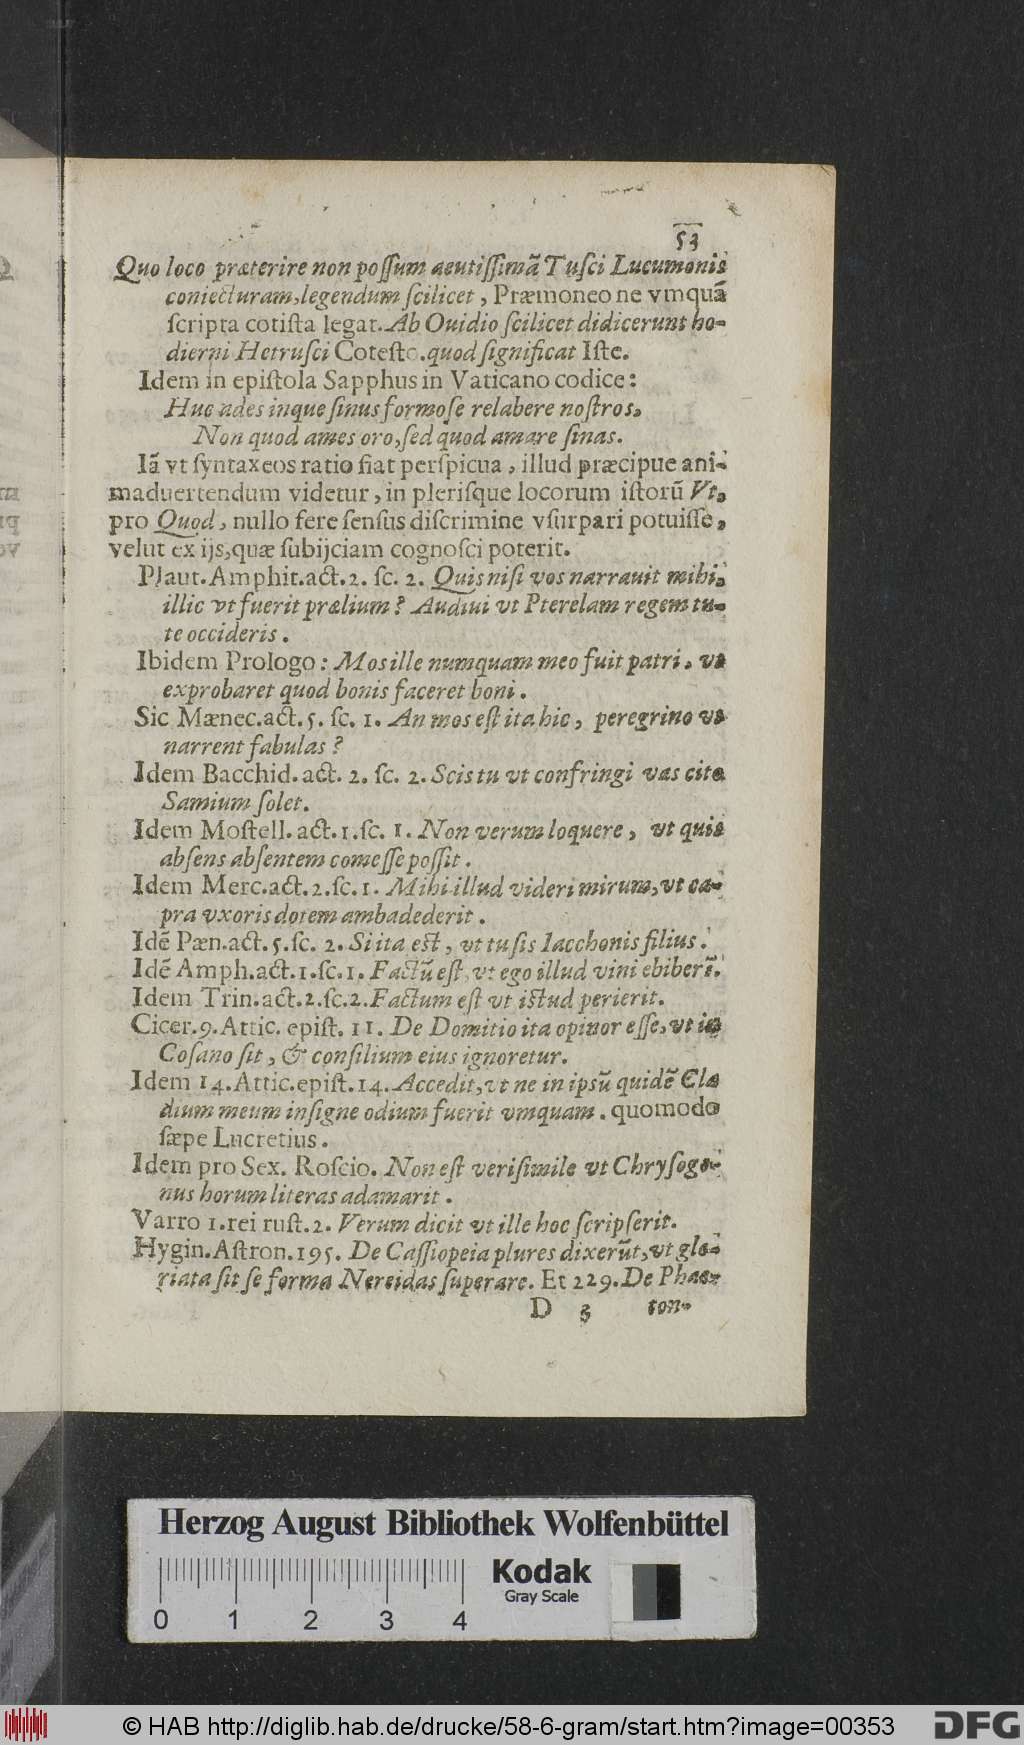 53
Quo loco præterire non poſſum acutiſſimā Tuſci Lucumonis
coniecturam, legendum ſcilicet, Præmoneo ne vmquā
ſcripta cotiſta legat. Ab Ouidio ſcilicet didicerunt ho-
dierni Hetruſci Coteſto. quod ſignificat Iſte.
Idem in epiſtola Sapphus in Vaticano codice:
Huc ades inque ſinus formoſe relabere noſtros.
Non quod ames oro, ſed quod amare ſinas.
Iā vt ſyntaxeos ratio fiat perſpicua, illud præcipue ani-
maduertendum videtur, in pleriſque locorum iſtorū Vt,
pro Quod, nullo fere ſenſus diſcrimine vſurpari potuiſſe,
velut ex ijs, quæ ſubijciam cognoſci poterit.
Plaut. Amphit. act. 2. ſc. 2. Quis niſi vos narrauit mihi,
illic vt fuerit prælium? Audiui vt Pterelam regem tu-
te occideris.
Ibidem Prologo: Mos ille numquam meo fuit patri. vt
exprobaret quod bonis faceret boni.
Sic Mænec. act. 5. ſc. 1. An mos eſt ita hic, peregrino vt
narrent fabulas?
Idem Bacchid. act. 2. ſc. 2. Scis tu vt confringi vas cito
Samium ſolet.
Idem Moſtell. act. 1. ſc. 1. Non verum loquere, vt quis
abſens abſentem comeſſe poſſit.
Idem Merc. act. 2. ſc. 1. Mihi illud videri mirum, vt ca-
pra vxoris dotem ambadederit.
Idē Pæn. act. 5. ſc. 2. Si ita eſt, vt tu ſis Iacchonis filius.
Idē Amph. act. 1. ſc. 1. Factū eſt, vt ego illud vini ebiberī.
Idem Trin. act. 2. ſc. 2. Factum eſt vt iſtud perierit.
Cicer. 9. Attic. epiſt. 11. De Domitio ita opinor eſſe, vt in
Coſano ſit, & conſilium eius ignoretur.
Idem 14. Attic. epiſt. 14. Accedit, vt ne in ipsū quidē Clo
dium meum inſigne odium fuerit vmquam. quomodo
ſæpe Lucretius.
Idem pro Sex. Roſcio. Non eſt veriſimile vt Chryſogo-
nus horum literas adamarit.
Varro 1. rei ruſt. 2. Verum dicit vt ille hoc ſcripſerit.
Hygin. Aſtron. 195. De Caſſiopeia plures dixerūt, vt glo-
riata ſit ſe forma Nereidas ſuperare. Et 229. De Phae-
D 3 ton-
Herzog August Bibliothek Wolfenbüttel
Kodak
Gray Scale
0 1 2 3 4
© HAB http://diglib.hab.de/drucke/58-6-gram/start.htm?image=00353
DFG